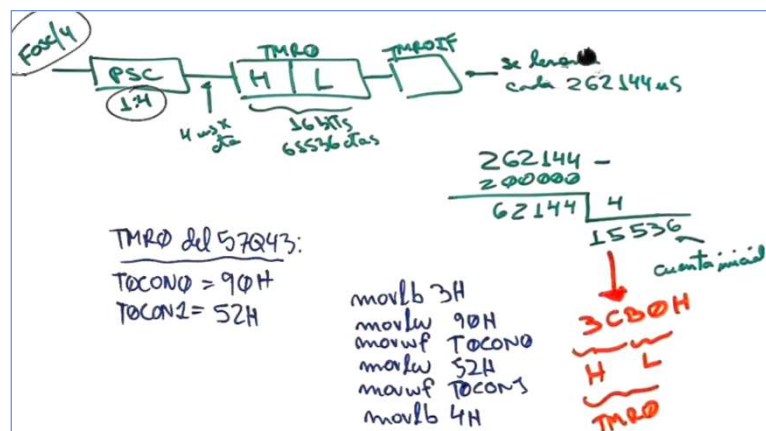 Fosc/4
PSC
1:4
4us x cta
TMR0
H L
16 bits
65536 ctas
TMR0IF
cada 262144 us
262144 -
200000
62144 4
15536
cuenta inicial
3CB0H
H L
TMR0
TMR0 del 57Q43:
T0CON0 = 90H
T0CON1 = 52H
movlb 3H
movlw 90H
movwf T0CON0
movlw 52H
movwf T0CON1
movlb 4H